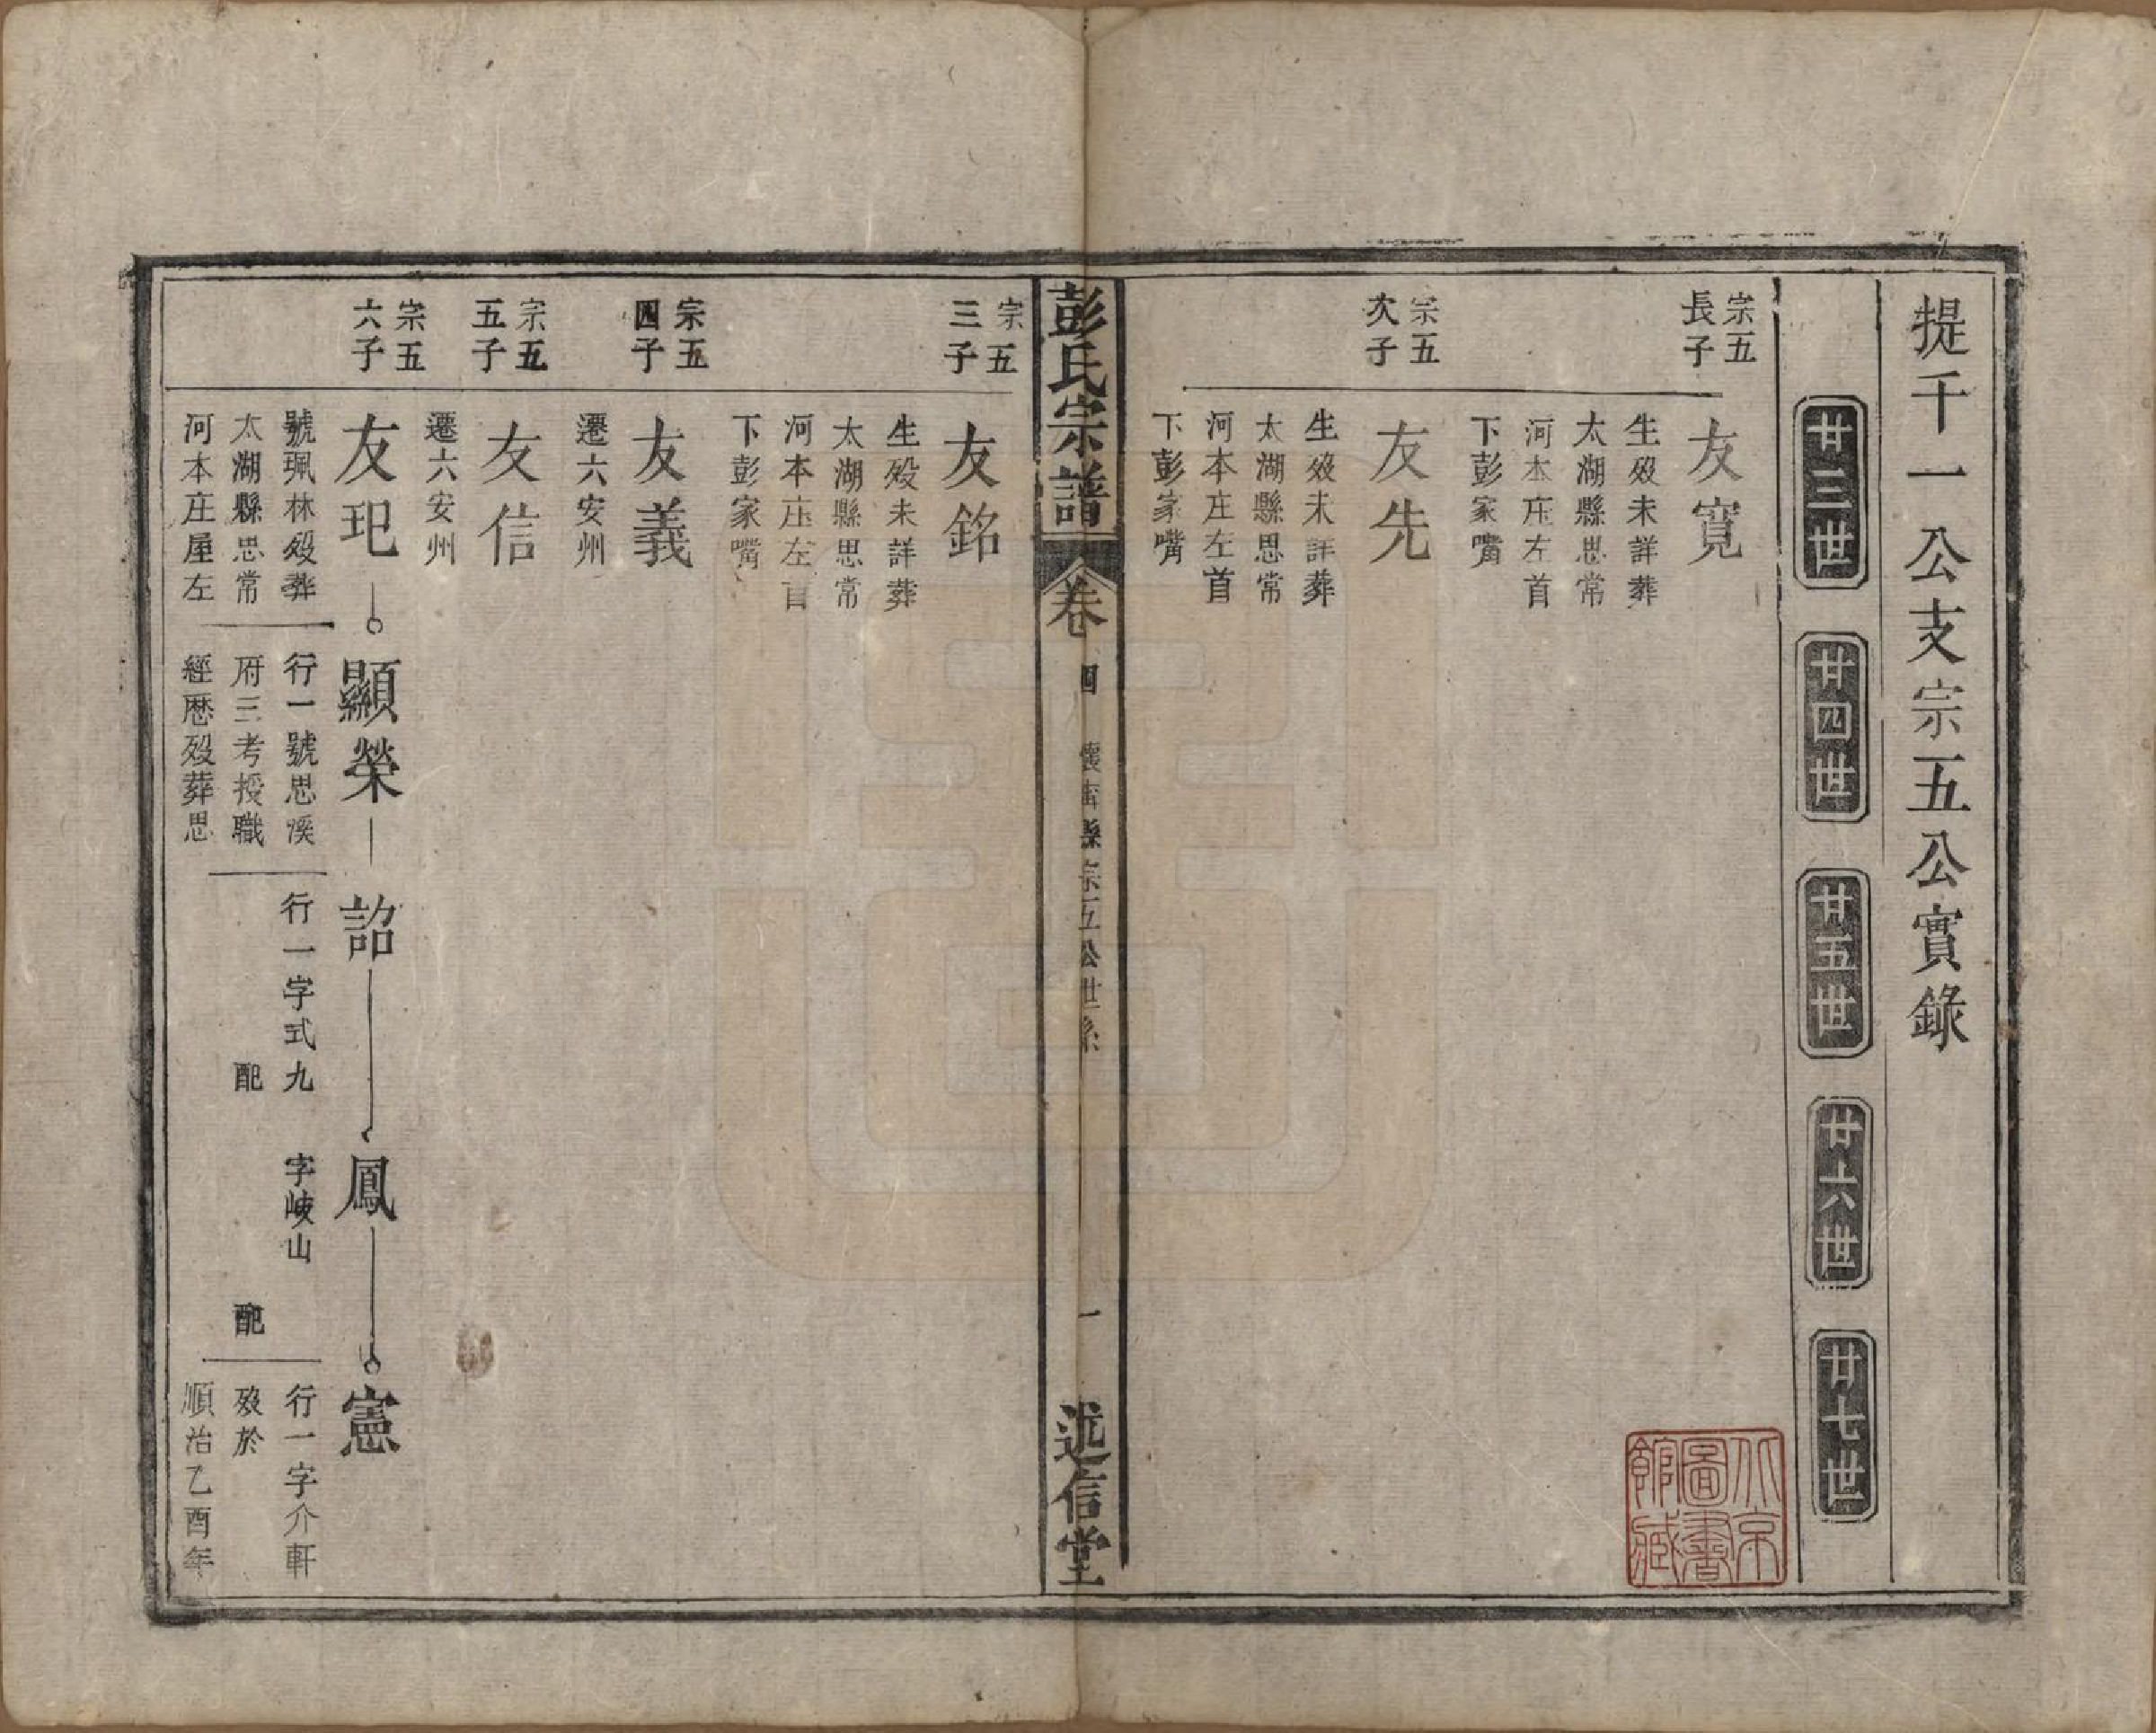 提千一公支宗五公實錄
廿三世
廿四世
廿五世
廿六世
廿七世
宗五
長子
友寬
生歿未詳葬
太湖縣思常
河本庄左首
下彭家嘴
宗五
次子
友先
生歿未詳葬
太湖縣思常
河本庄左首
下彭家嘴
彭氏宗譜
卷四
懷甯縣宗五公世系
一
述信堂
宗五
三子
友銘
生歿未詳葬
太湖縣思常
河本庄左首
下彭家嘴
宗五
四子
友義
遷六安州
宗五
五子
友信
遷六安州
宗五
六子
友玘
號珮林歿葬
太湖縣思常
河本庄屋左
顯榮
行一號思溪
府三考授職
經歷歿葬思
詔
行一字式九
配
鳳
字岐山
配
憲
行一字介軒
歿於
順治乙酉年
北京
圖書
館藏